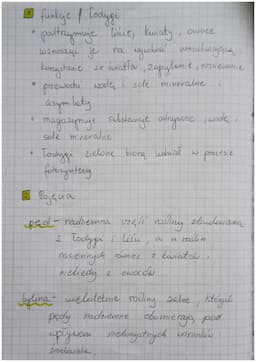 funkcje łodygi
• podtrzymuje liście, kwiaty, owoce
wznosząc je na wysokość umożliwiającą
korzystanie ze światła, zapylenie, rozsiewanie
• przewodzi wodę i sole mineralne i
asymilaty
• magazynuje substancje odżywcze, wodę,
sole mineralne
• łodygi zielone biorą udział w procesie
fotosyntezy
Pojęcia
pęd - nadziemna część rośliny zbudowana
z łodygi i liści, a u roślin
nasiennych również z kwiatów
niekiedy z owoców.
bylina - wieloletnie rośliny zielne, których
pędy nadziemne obumierają pod
wpływem niekorzystnych warunków
środowiska.